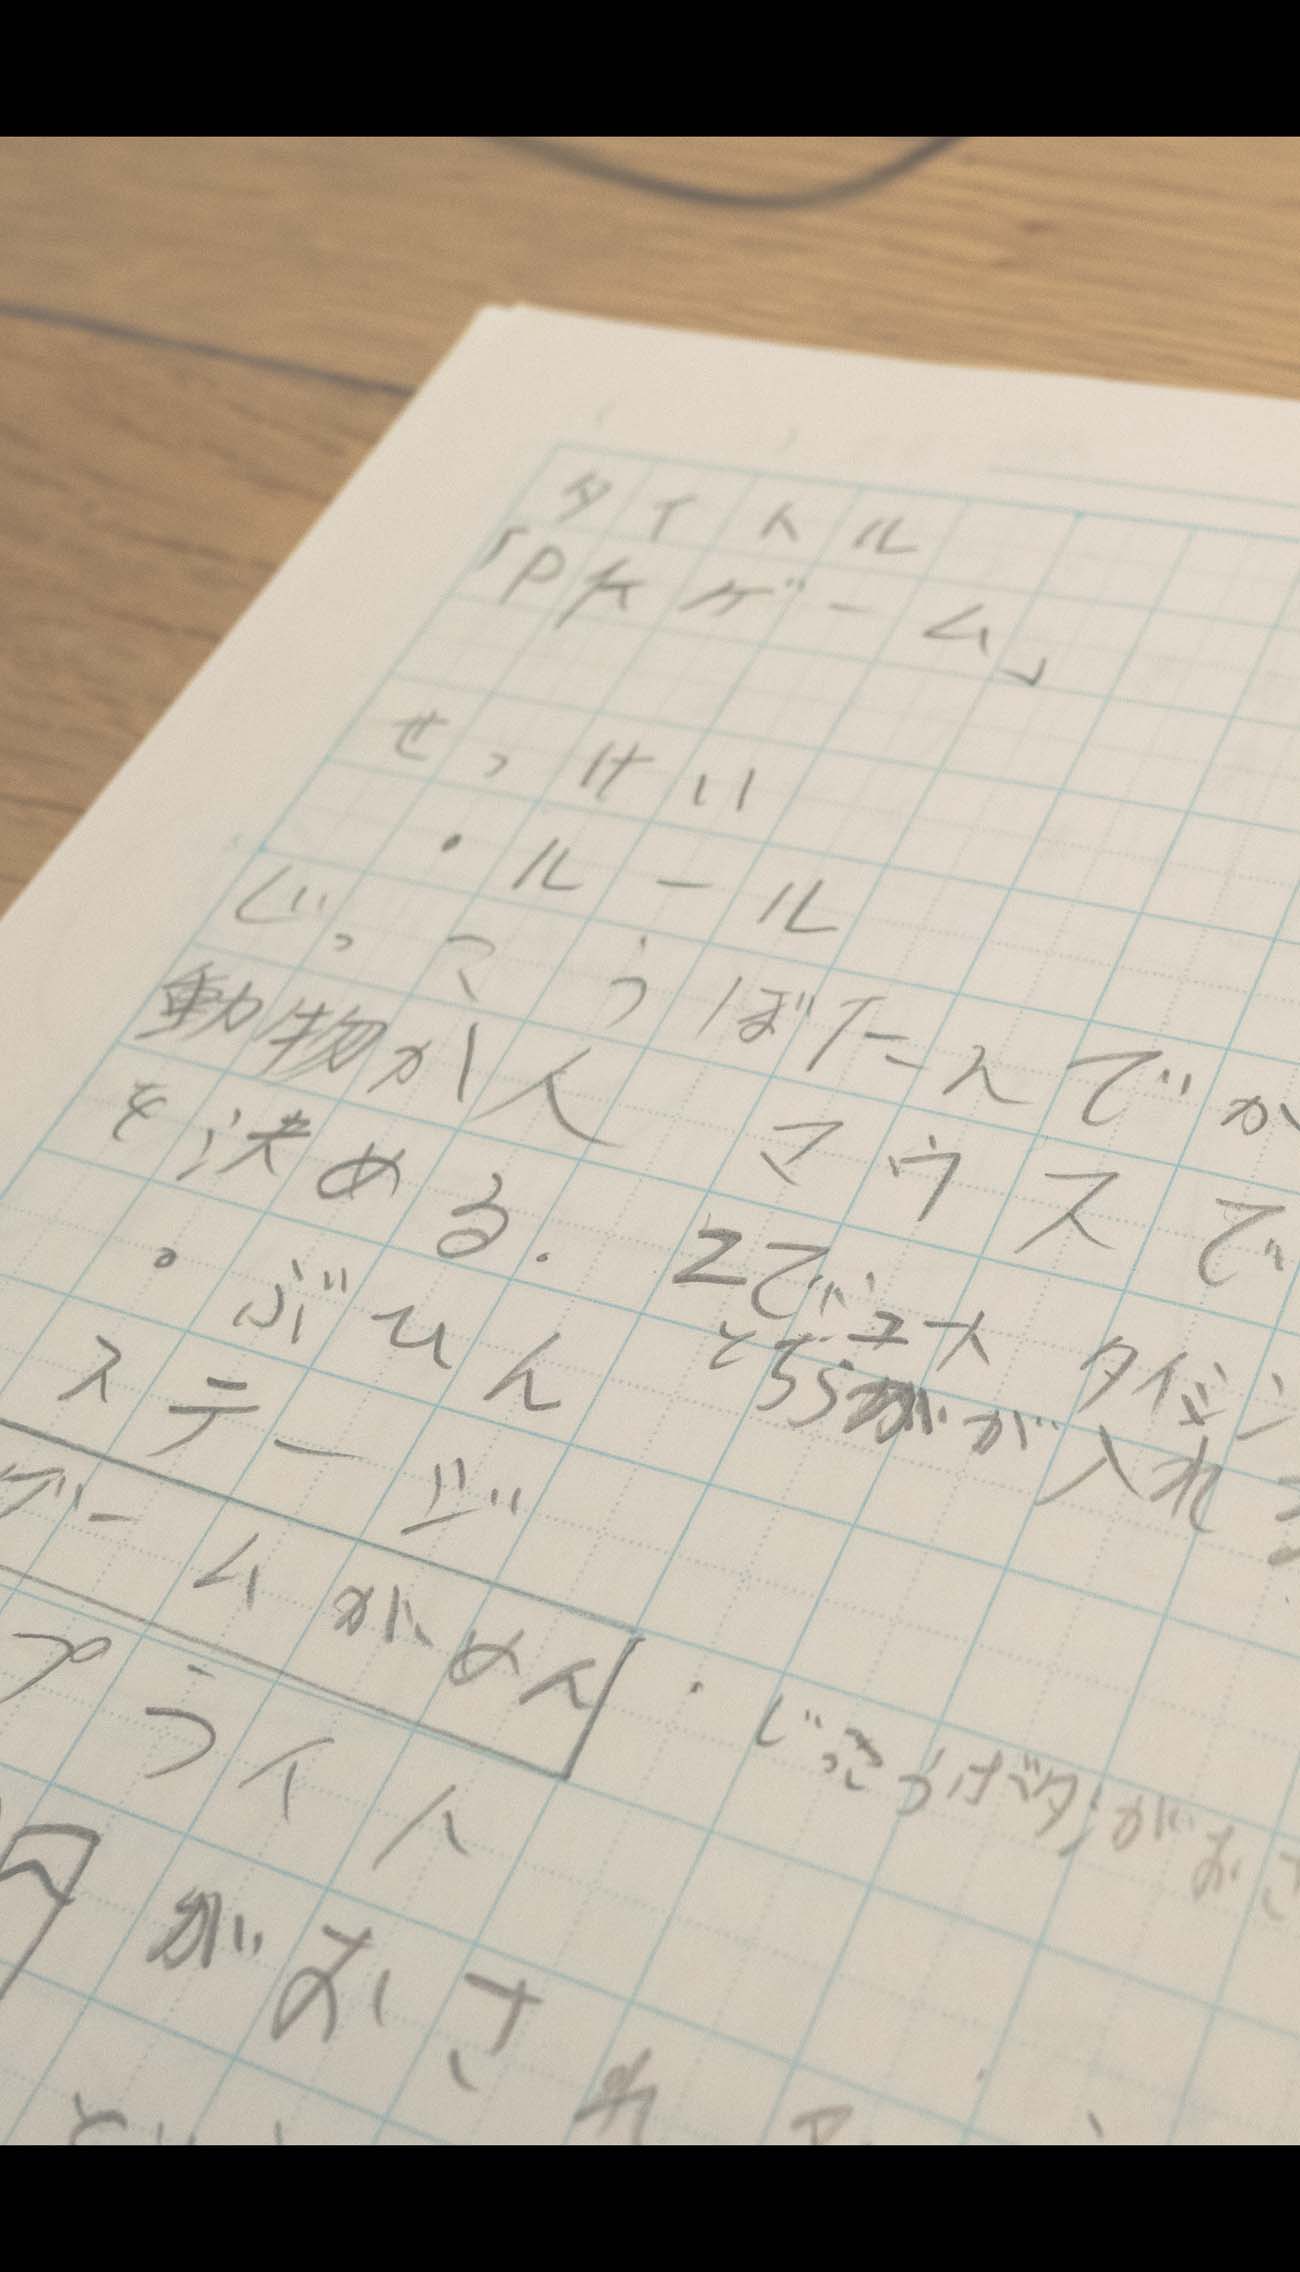 タイトル
「PKゲーム」
せっけい
・ルール
じっこうぼたんでか
動物か人 マウスで
を決める. 2で
どちらかが入れ
・ぶひん タイミン
ステージ
ゲームがめん
・じっこうボタンがおさ
プライト
がおされ